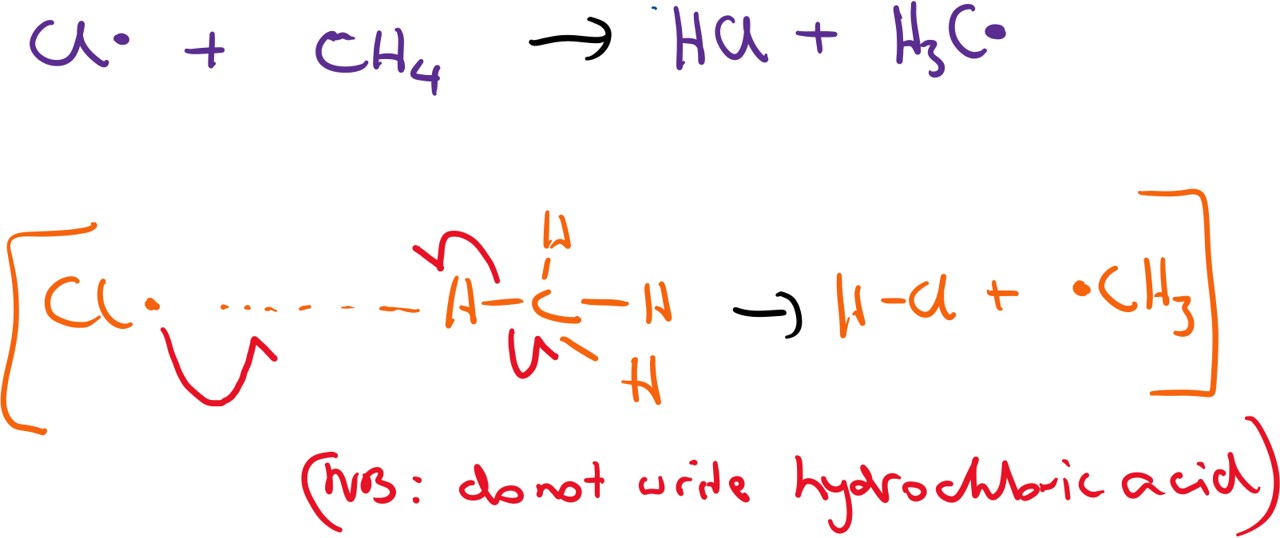 Cl• + CH₄ → HCl + H₃C•
H
[Cl• ........ H–C–H → H–Cl + •CH₃]
H
(NB: do not write hydrochloric acid)